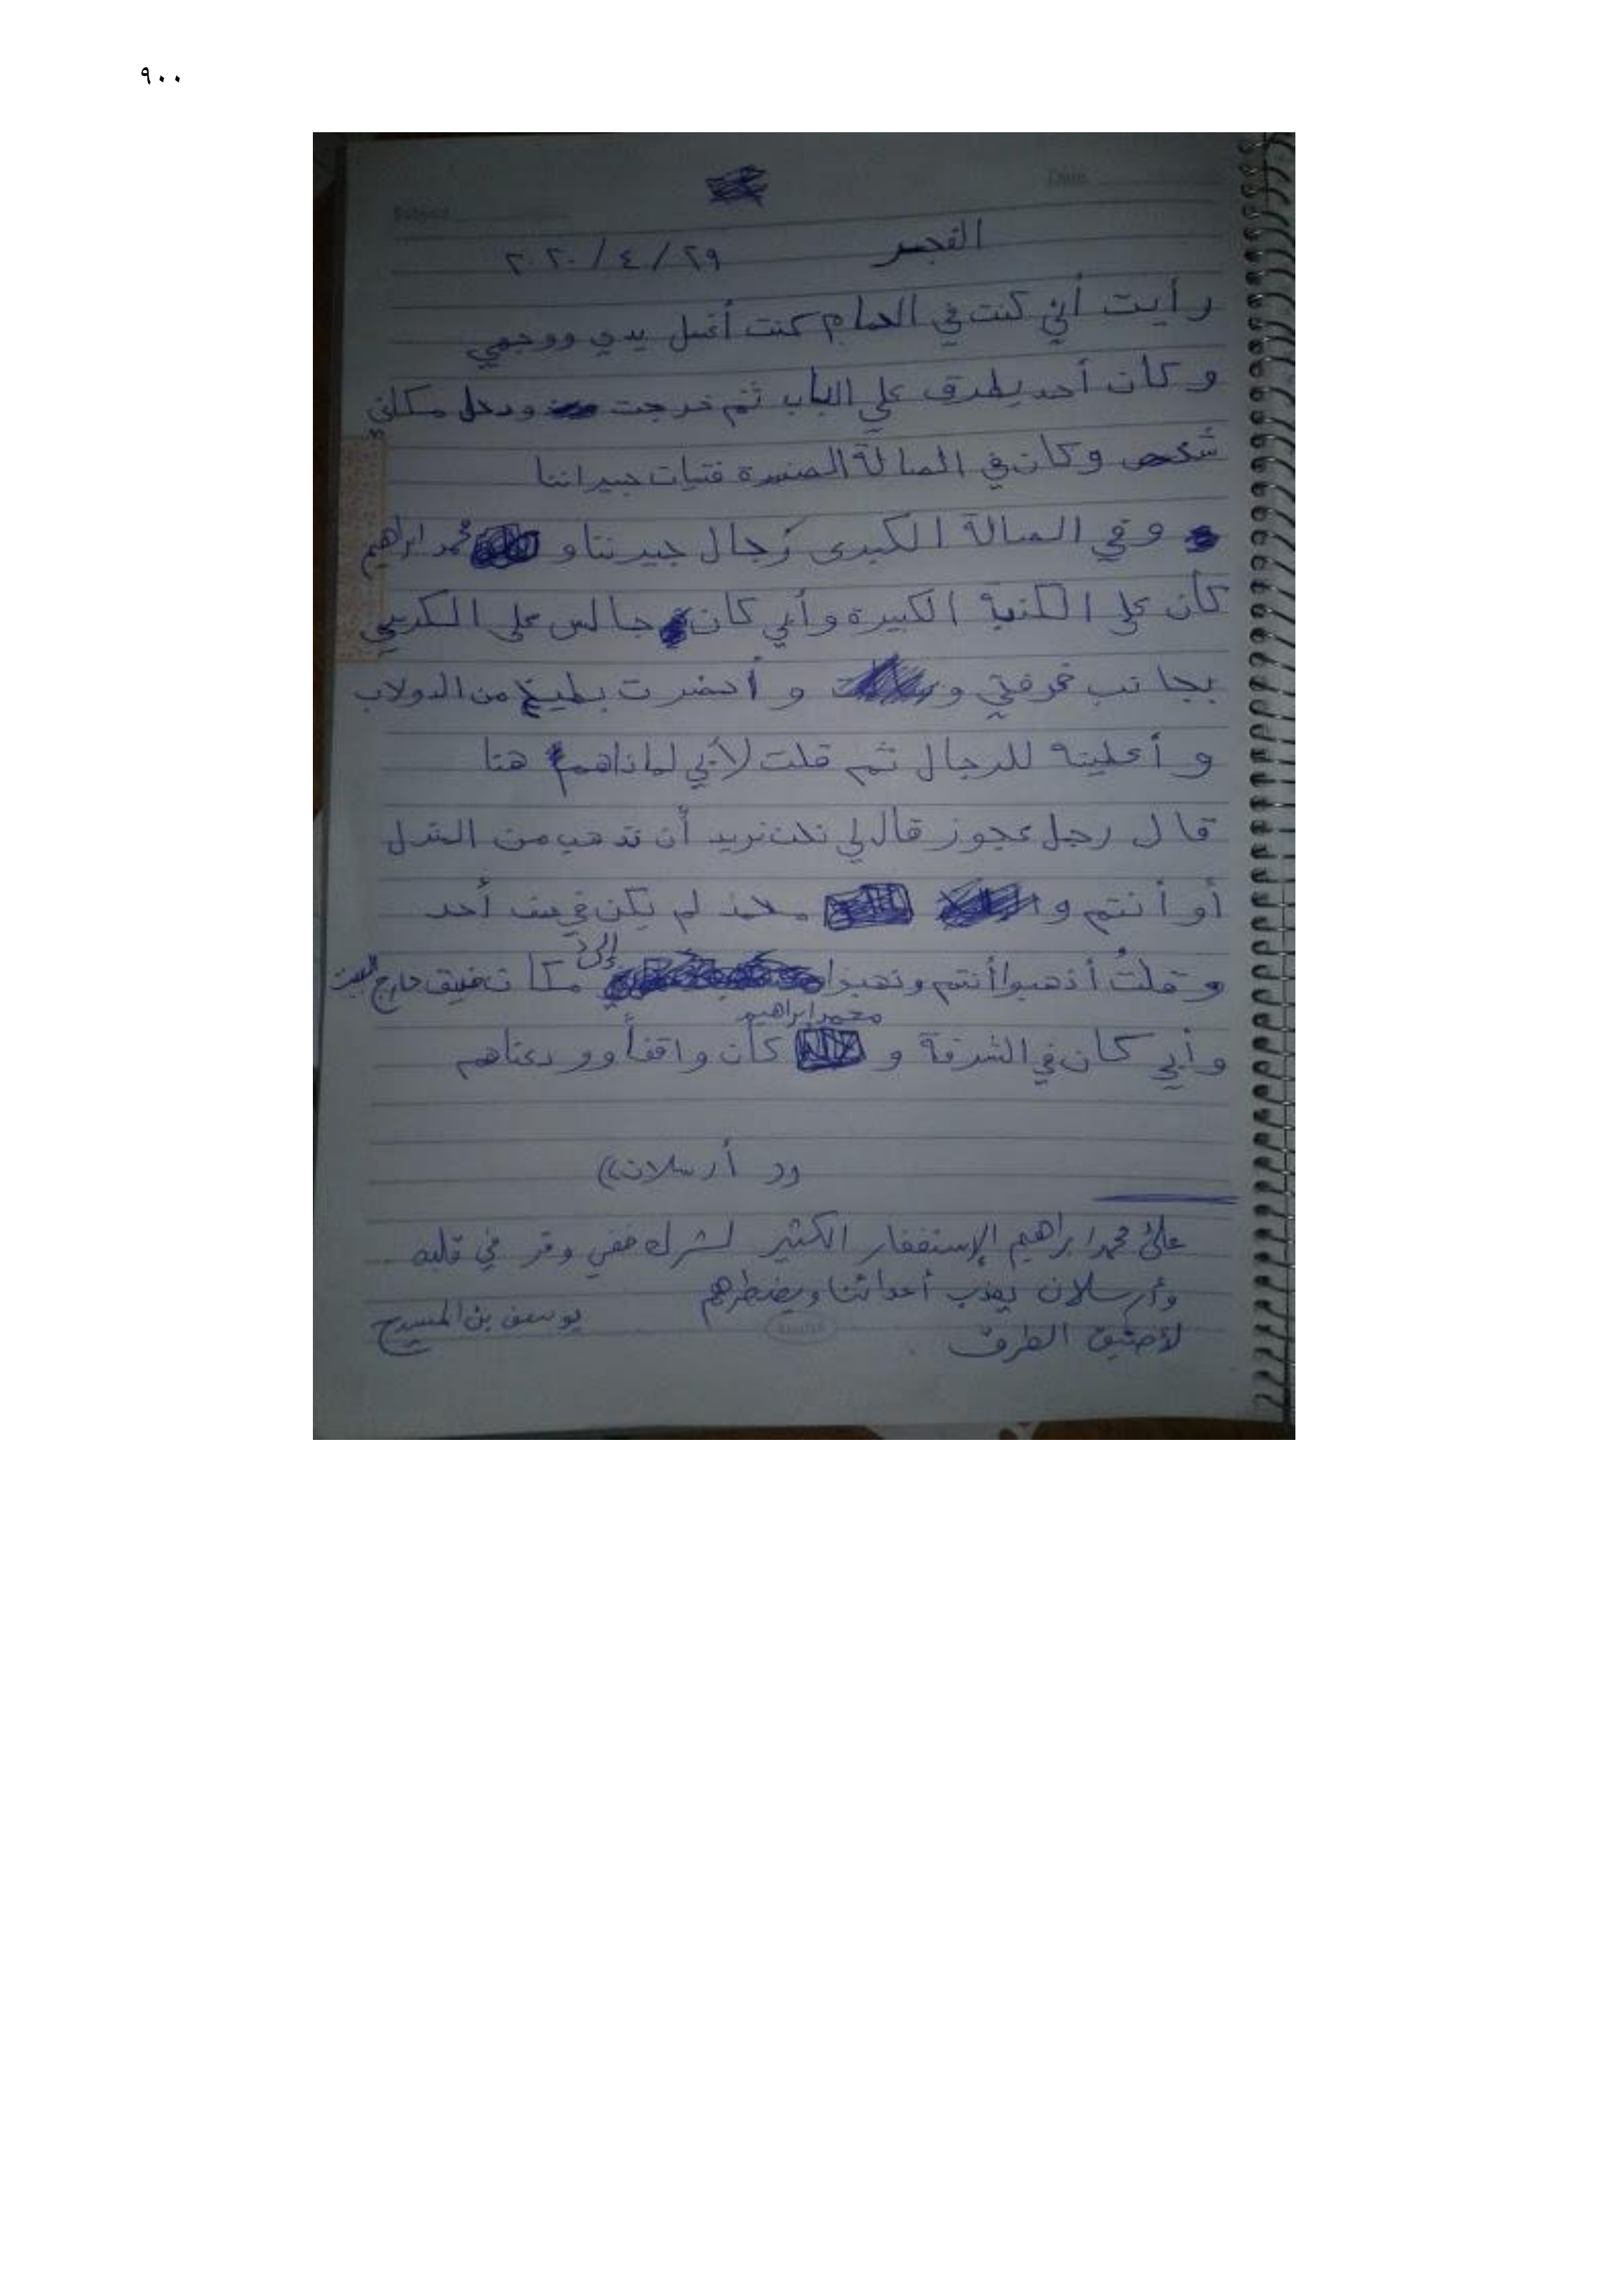 ٩٠٠
الفجر ٢٩/٤/٢٠٢٠
رأيت أني كنت في الحمام كنت أغسل يدي ووجهي
وكان أحد يطرق علي الباب ثم خرجت ودخل مكاني
شخص وكان في الصالة الصغيرة فتيات جيراننا
وفي الصالة الكبرى رجال جيرننا و محمد ابراهيم
كان على الكنبة الكبيرة وأبي كان جالس على الكرسي
بجانب غرفتي و وأحضرت بطيخ من الدولاب
وأعطيته للرجال ثم قلت لأبي لماذا هم هنا
قال رجل عجوز قال لي نحن نريد أن نذهب من المنزل
أو أنتم و لم يكن في أحد
وقلتُ أذهبوا أنتم وذهبوا إلى مكان ضيق خارج البيت
وأبي كان في الشرفة و محمد ابراهيم كان واقفاً وودعناهم
((أرسلان))
على محمد ابراهيم الإستغفار الكثير لشرك خفي وقر في قلبه
وأرسلان يعذب أعدائنا ويضطرهم
لأضيق الطرق يوسف بن المسيح